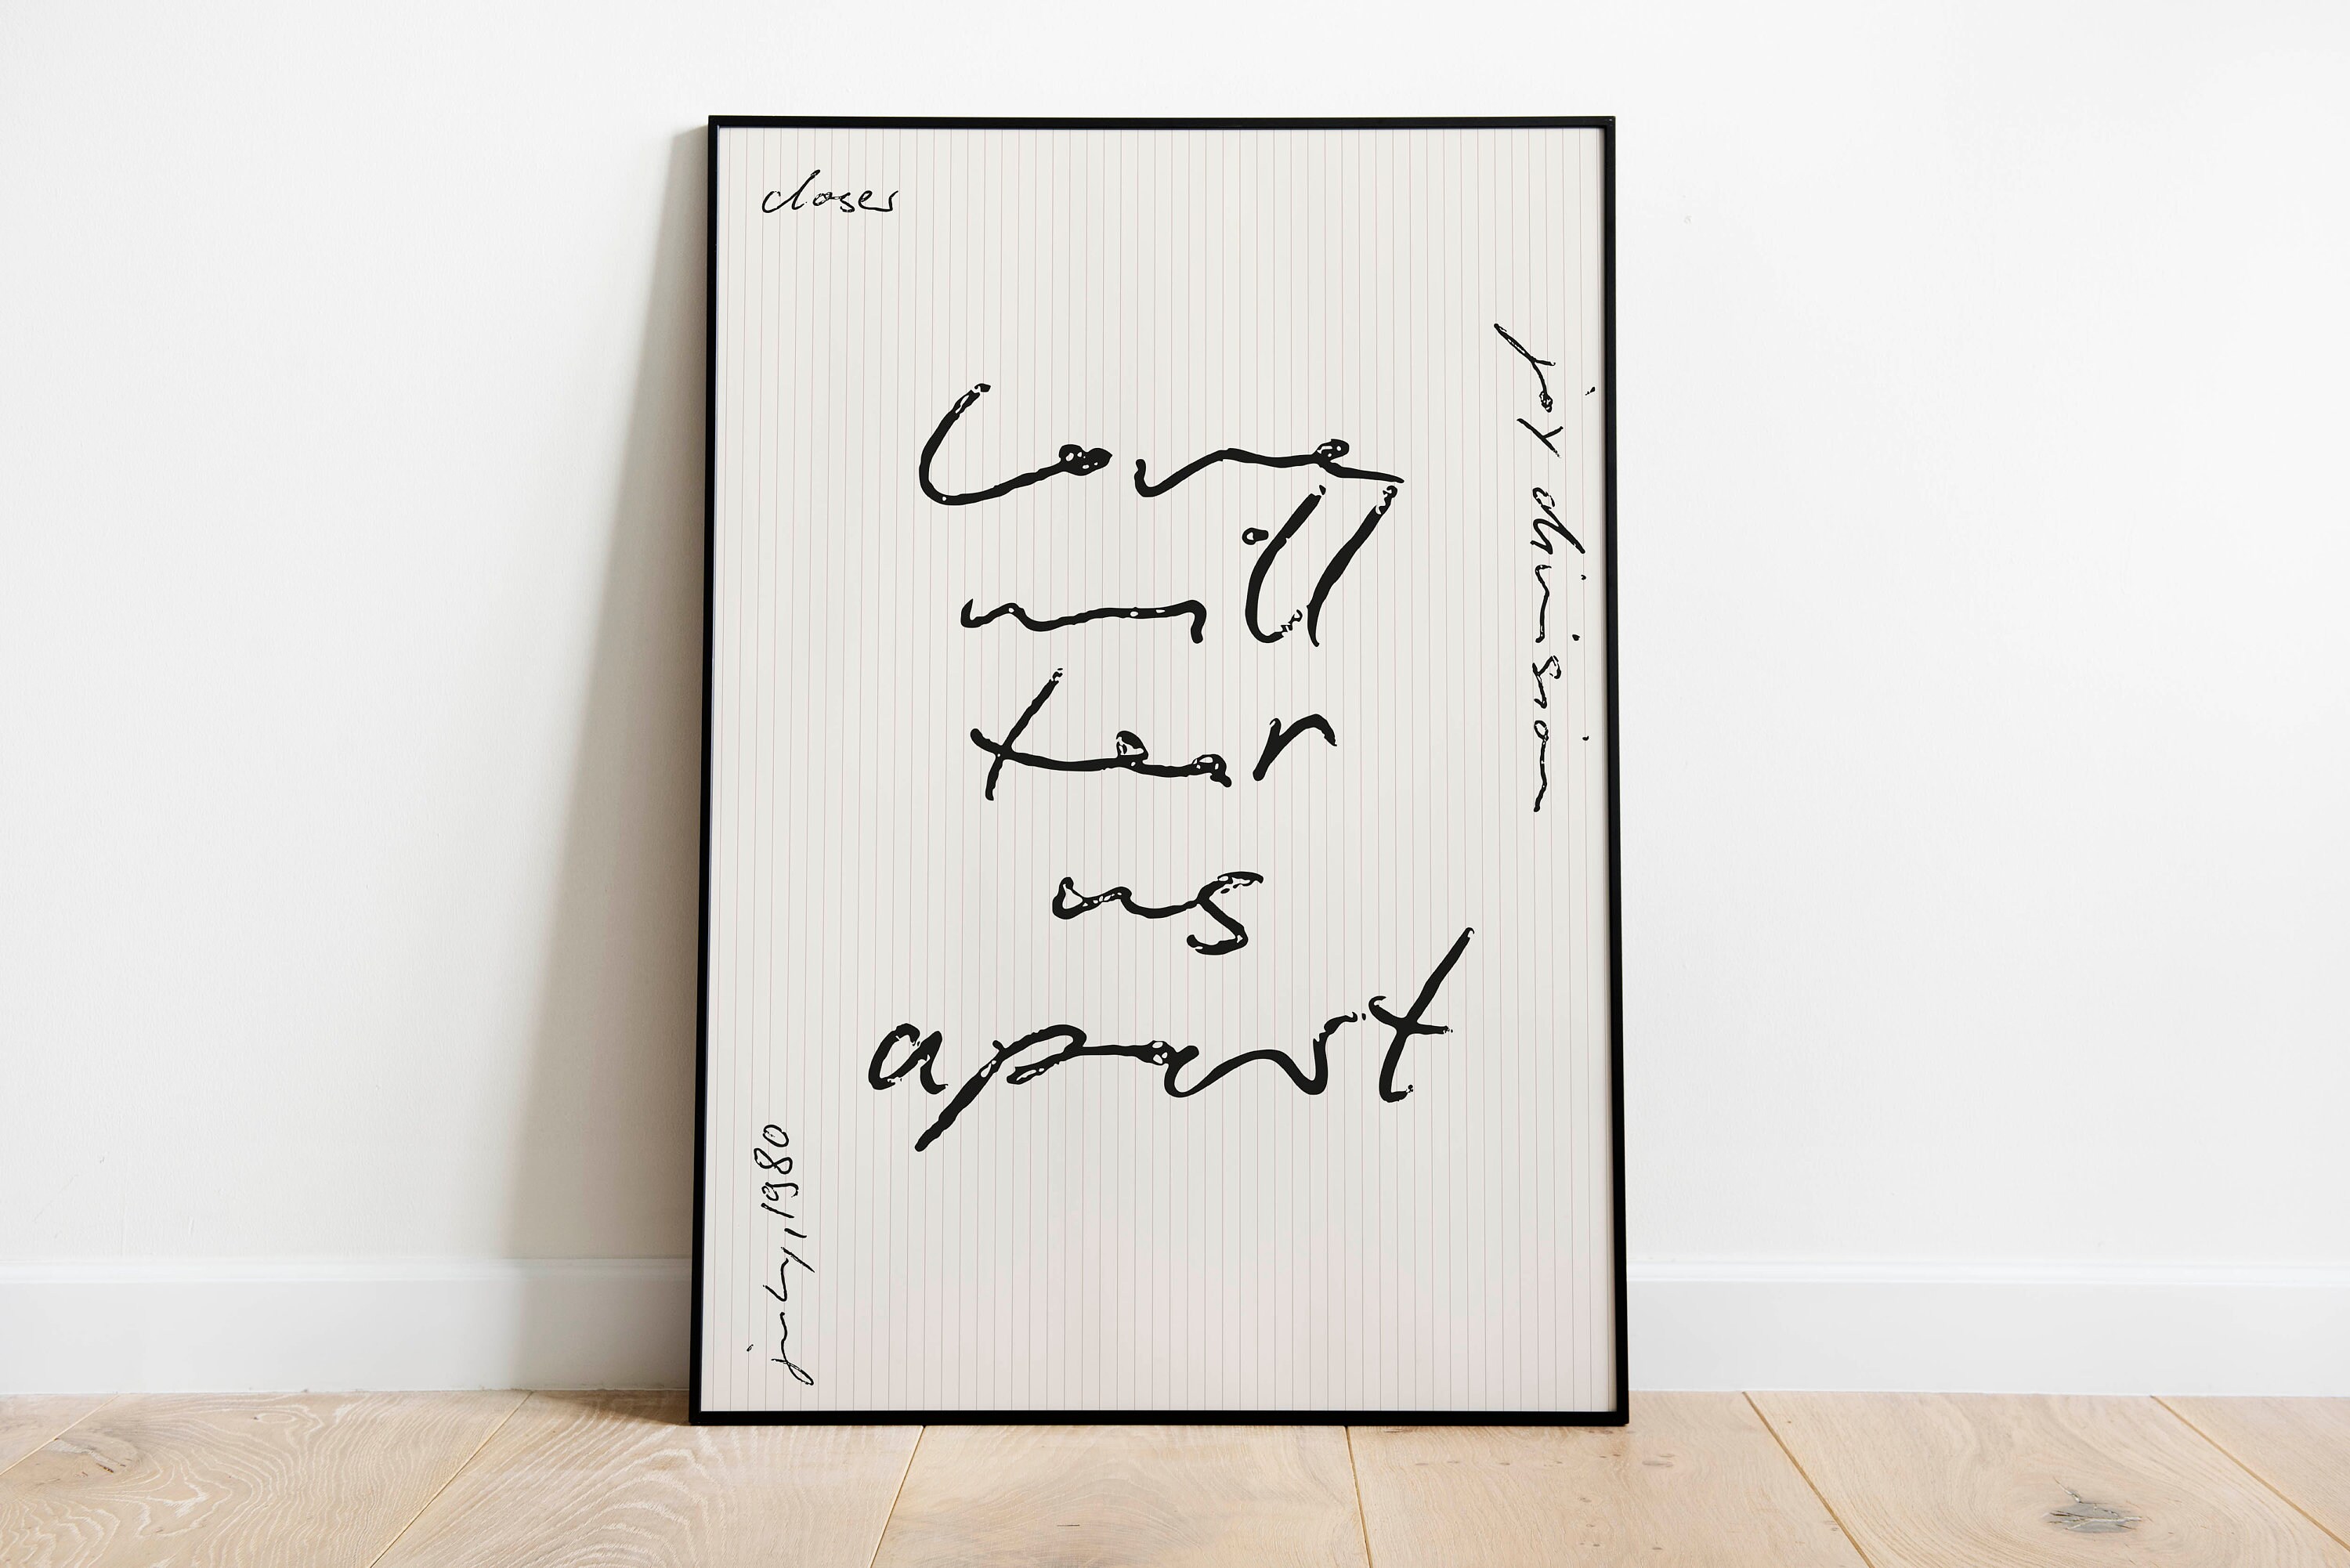 closer
joy division
Love
will
tear
us
apart
july, 1980